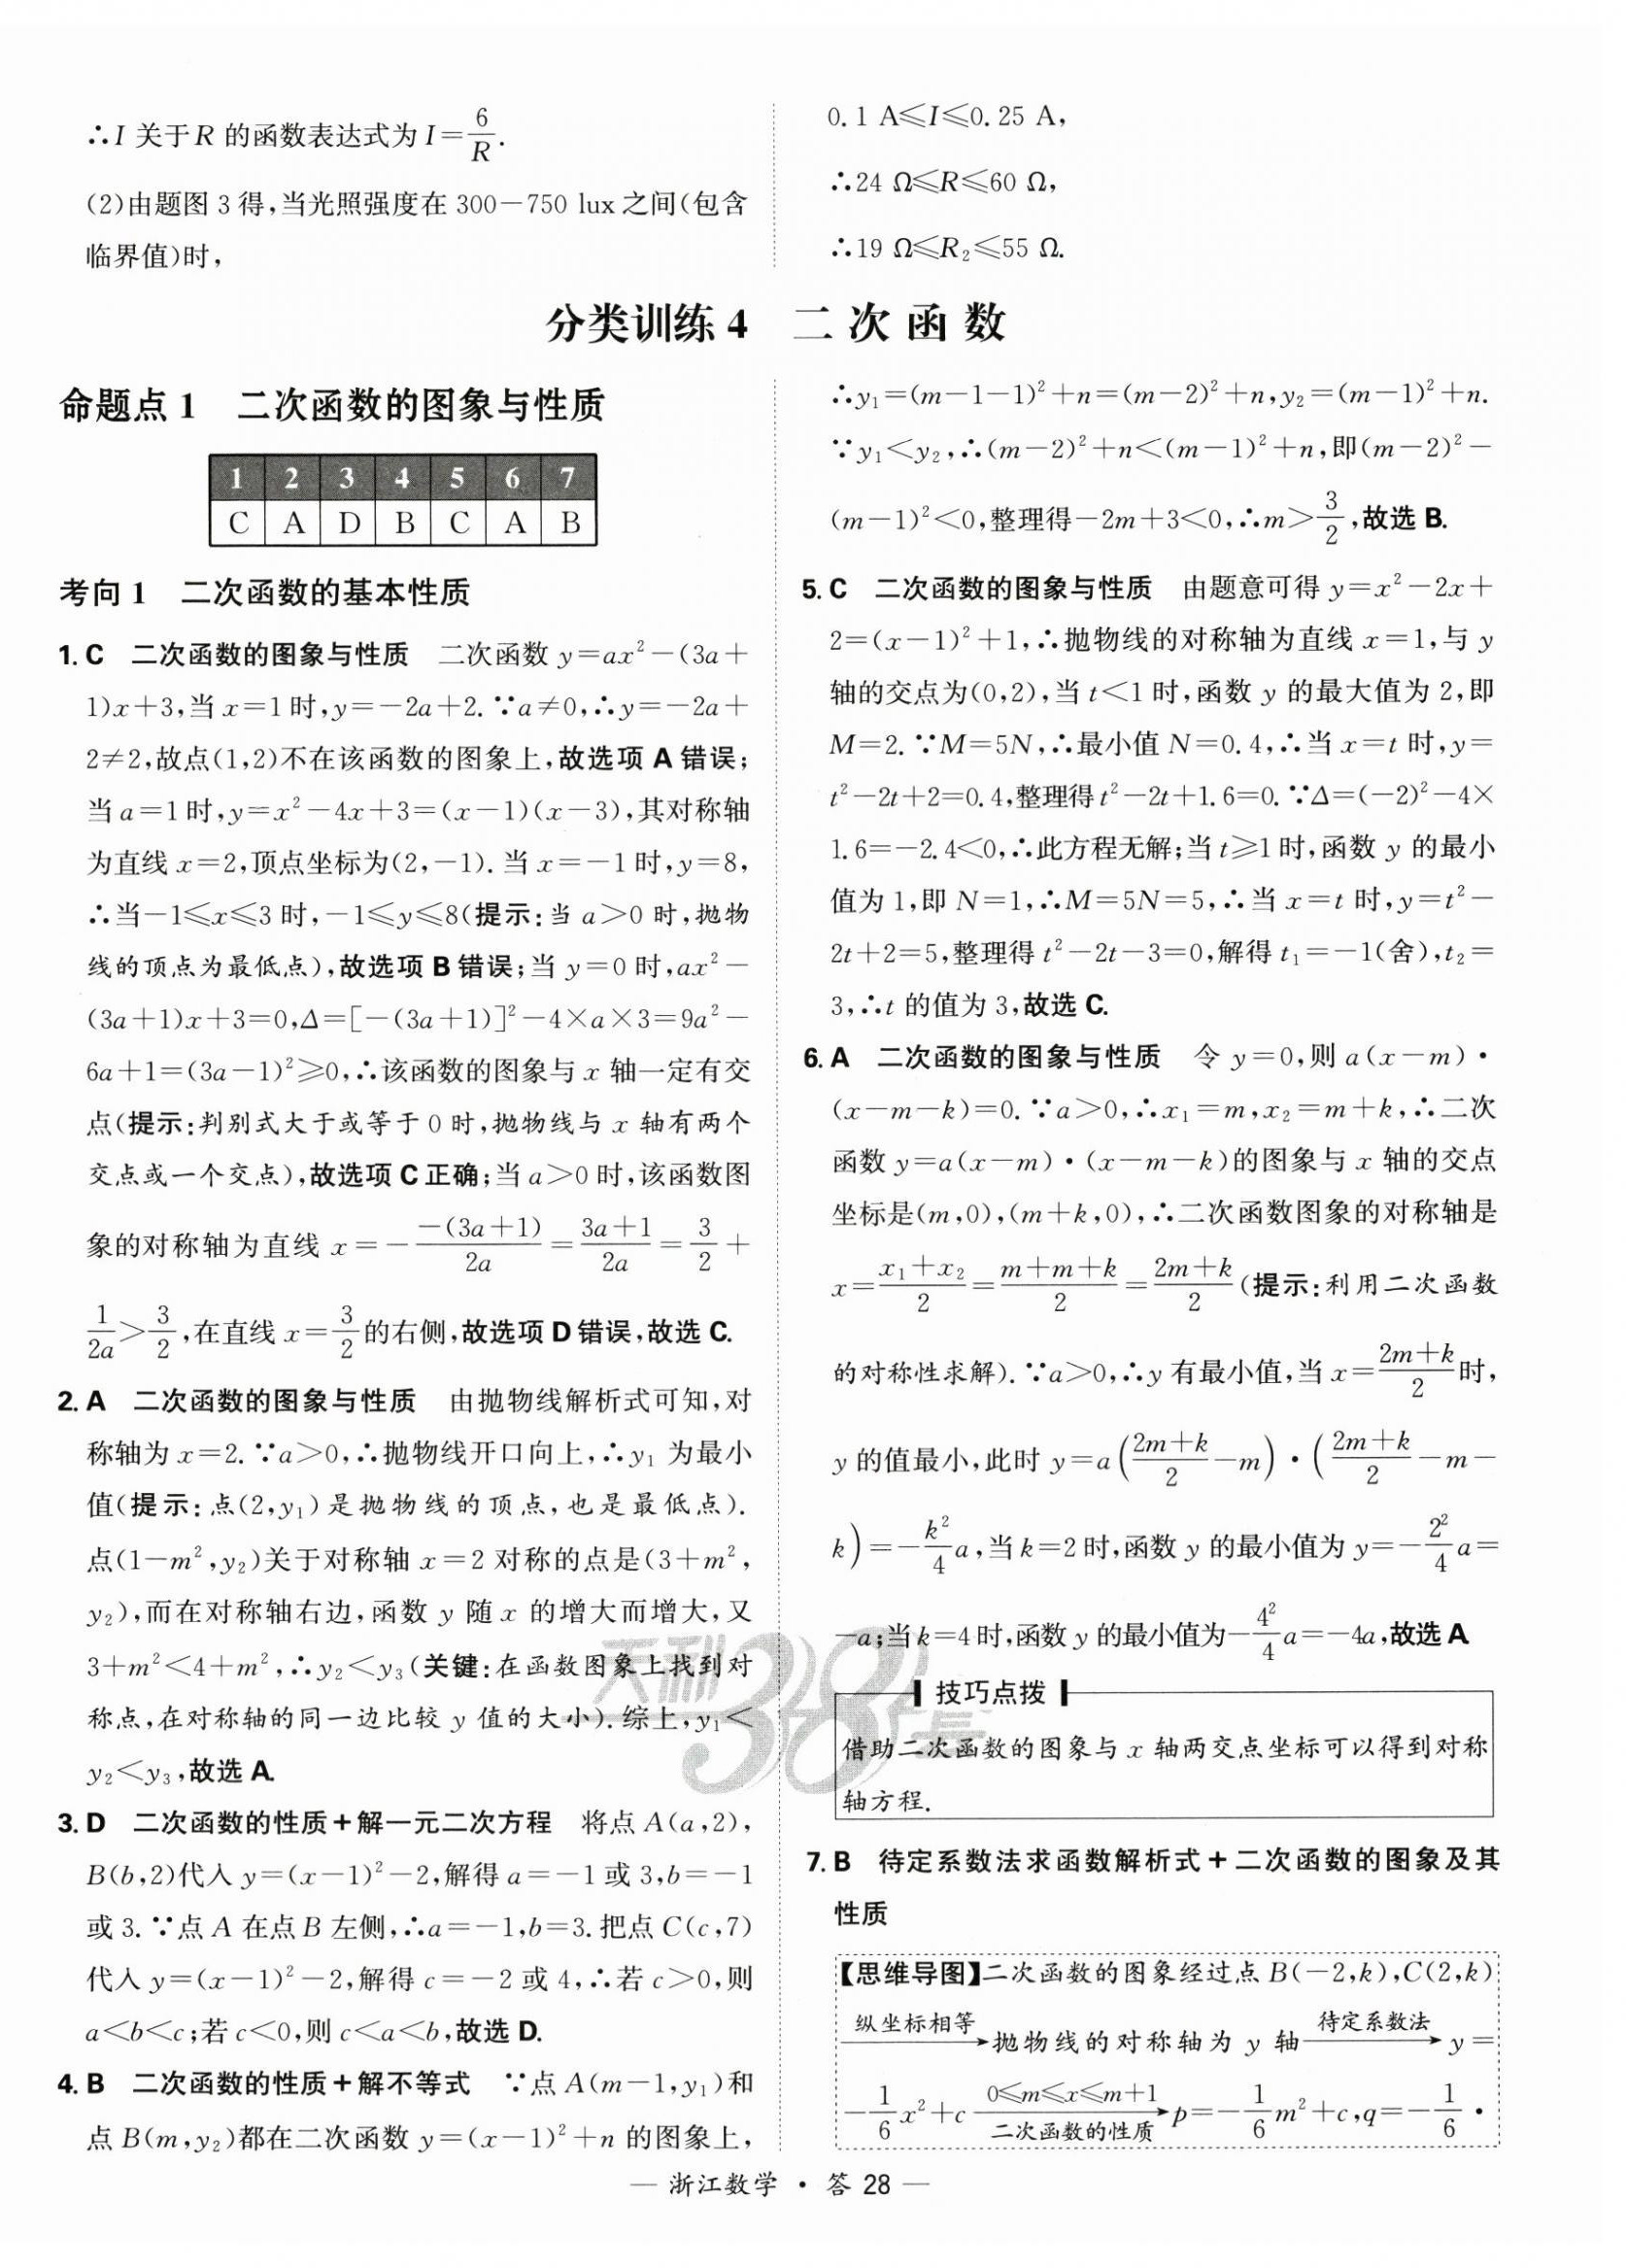 ∴I 关于R 的函数表达式为 I=6/R.
(2)由题图 3 得,当光照强度在 300-750 lux之间(包含
临界值)时,
0.1 A≤I≤0.25 A,
∴24 Ω≤R≤60 Ω,
∴19 Ω≤R₂≤55 Ω.
分类训练 4 二次函数
命题点 1 二次函数的图象与性质
1 2 3 4 5 6 7
C A D B C A B
考向 1 二次函数的基本性质
1. C 二次函数的图象与性质 二次函数 y=ax²-(3a+
1)x+3,当 x=1 时,y=-2a+2.∵a≠0,∴y=-2a+
2≠2,故点(1,2)不在该函数的图象上,故选项 A 错误;
当 a=1 时,y=x²-4x+3=(x-1)(x-3),其对称轴
为直线 x=2,顶点坐标为(2,-1).当 x=-1 时,y=8,
∴当-1≤x≤3 时,-1≤y≤8(提示:当 a>0 时,抛物
线的顶点为最低点),故选项 B 错误;当 y=0 时,ax²-
(3a+1)x+3=0,Δ=[-(3a+1)]²-4×a×3=9a²-
6a+1=(3a-1)²≥0,∴该函数的图象与 x 轴一定有交
点(提示:判别式大于或等于 0 时,抛物线与 x 轴有两个
交点或一个交点),故选项 C 正确;当 a>0 时,该函数图
象的对称轴为直线 x=-\frac{-(3a+1)}{2a}=\frac{3a+1}{2a}=\frac{3}{2}+
\frac{1}{2a}>\frac{3}{2},在直线 x=\frac{3}{2}的右侧,故选项 D 错误,故选 C.
2. A 二次函数的图象与性质 由抛物线解析式可知,对
称轴为 x=2.∵a>0,∴抛物线开口向上,∴y₁ 为最小
值(提示:点(2,y₁)是抛物线的顶点,也是最低点).
点(1-m²,y₂)关于对称轴 x=2 对称的点是(3+m²,
y₂),而在对称轴右边,函数 y 随 x 的增大而增大,又
3+m²<4+m²,∴y₂<y₃(关键:在函数图象上找到对
称点,在对称轴的同一边比较 y 值的大小).综上,y₁<
y₂<y₃,故选 A.
3. D 二次函数的性质+解一元二次方程 将点 A(a,2),
B(b,2)代入 y=(x-1)²-2,解得 a=-1 或 3,b=-1
或 3.∵点 A 在点 B 左侧,∴a=-1,b=3.把点 C(c,7)
代入 y=(x-1)²-2,解得 c=-2 或 4,∴若 c>0,则
a<b<c;若 c<0,则 c<a<b,故选 D.
4. B 二次函数的性质+解不等式 ∵点 A(m-1,y₁)和
点 B(m,y₂)都在二次函数 y=(x-1)²+n 的图象上,
∴y₁=(m-1-1)²+n=(m-2)²+n,y₂=(m-1)²+n.
∵y₁<y₂,∴(m-2)²+n<(m-1)²+n,即(m-2)²-
(m-1)²<0,整理得-2m+3<0,∴m>\frac{3}{2},故选 B.
5. C 二次函数的图象与性质 由题意可得 y=x²-2x+
2=(x-1)²+1,∴抛物线的对称轴为直线 x=1,与 y
轴的交点为(0,2),当 t<1 时,函数 y 的最大值为 2,即
M=2.∵M=5N,∴最小值 N=0.4,∴当 x=t 时,y=
t²-2t+2=0.4,整理得 t²-2t+1.6=0.∵Δ=(-2)²-4×
1.6=-2.4<0,∴此方程无解;当 t≥1 时,函数 y 的最小
值为 1,即 N=1,∴M=5N=5,∴当 x=t 时,y=t²-
2t+2=5,整理得 t²-2t-3=0,解得 t₁=-1(舍),t₂=
3,∴t 的值为 3,故选 C.
6. A 二次函数的图象与性质 令 y=0,则 a(x-m)·
(x-m-k)=0.∵a>0,∴x₁=m,x₂=m+k,∴二次
函数 y=a(x-m)·(x-m-k)的图象与 x 轴的交点
坐标是(m,0),(m+k,0),∴二次函数图象的对称轴是
x=\frac{x₁+x₂}{2}=\frac{m+m+k}{2}=\frac{2m+k}{2}(提示:利用二次函数
的对称性求解).∵a>0,∴y 有最小值,当 x=\frac{2m+k}{2}时,
y 的值最小,此时 y=a(\frac{2m+k}{2}-m)·(\frac{2m+k}{2}-m-
k)=-\frac{k²}{4}a,当 k=2 时,函数 y 的最小值为 y=-\frac{2²}{4}a=
-a;当 k=4 时,函数 y 的最小值为-\frac{4²}{4}a=-4a,故选 A.
技巧点拨
借助二次函数的图象与 x 轴两交点坐标可以得到对称
轴方程.
7. B 待定系数法求函数解析式+二次函数的图象及其
性质
【思维导图】二次函数的图象经过点 B(-2,k),C(2,k)
纵坐标相等→抛物线的对称轴为 y 轴 待定系数法→ y=
-\frac{1}{6}x²+c 0≤m≤x≤m+1 二次函数的性质→p=-\frac{1}{6}m²+c,q=-\frac{1}{6}·
天利38套
— 浙江数学 · 答 28 —